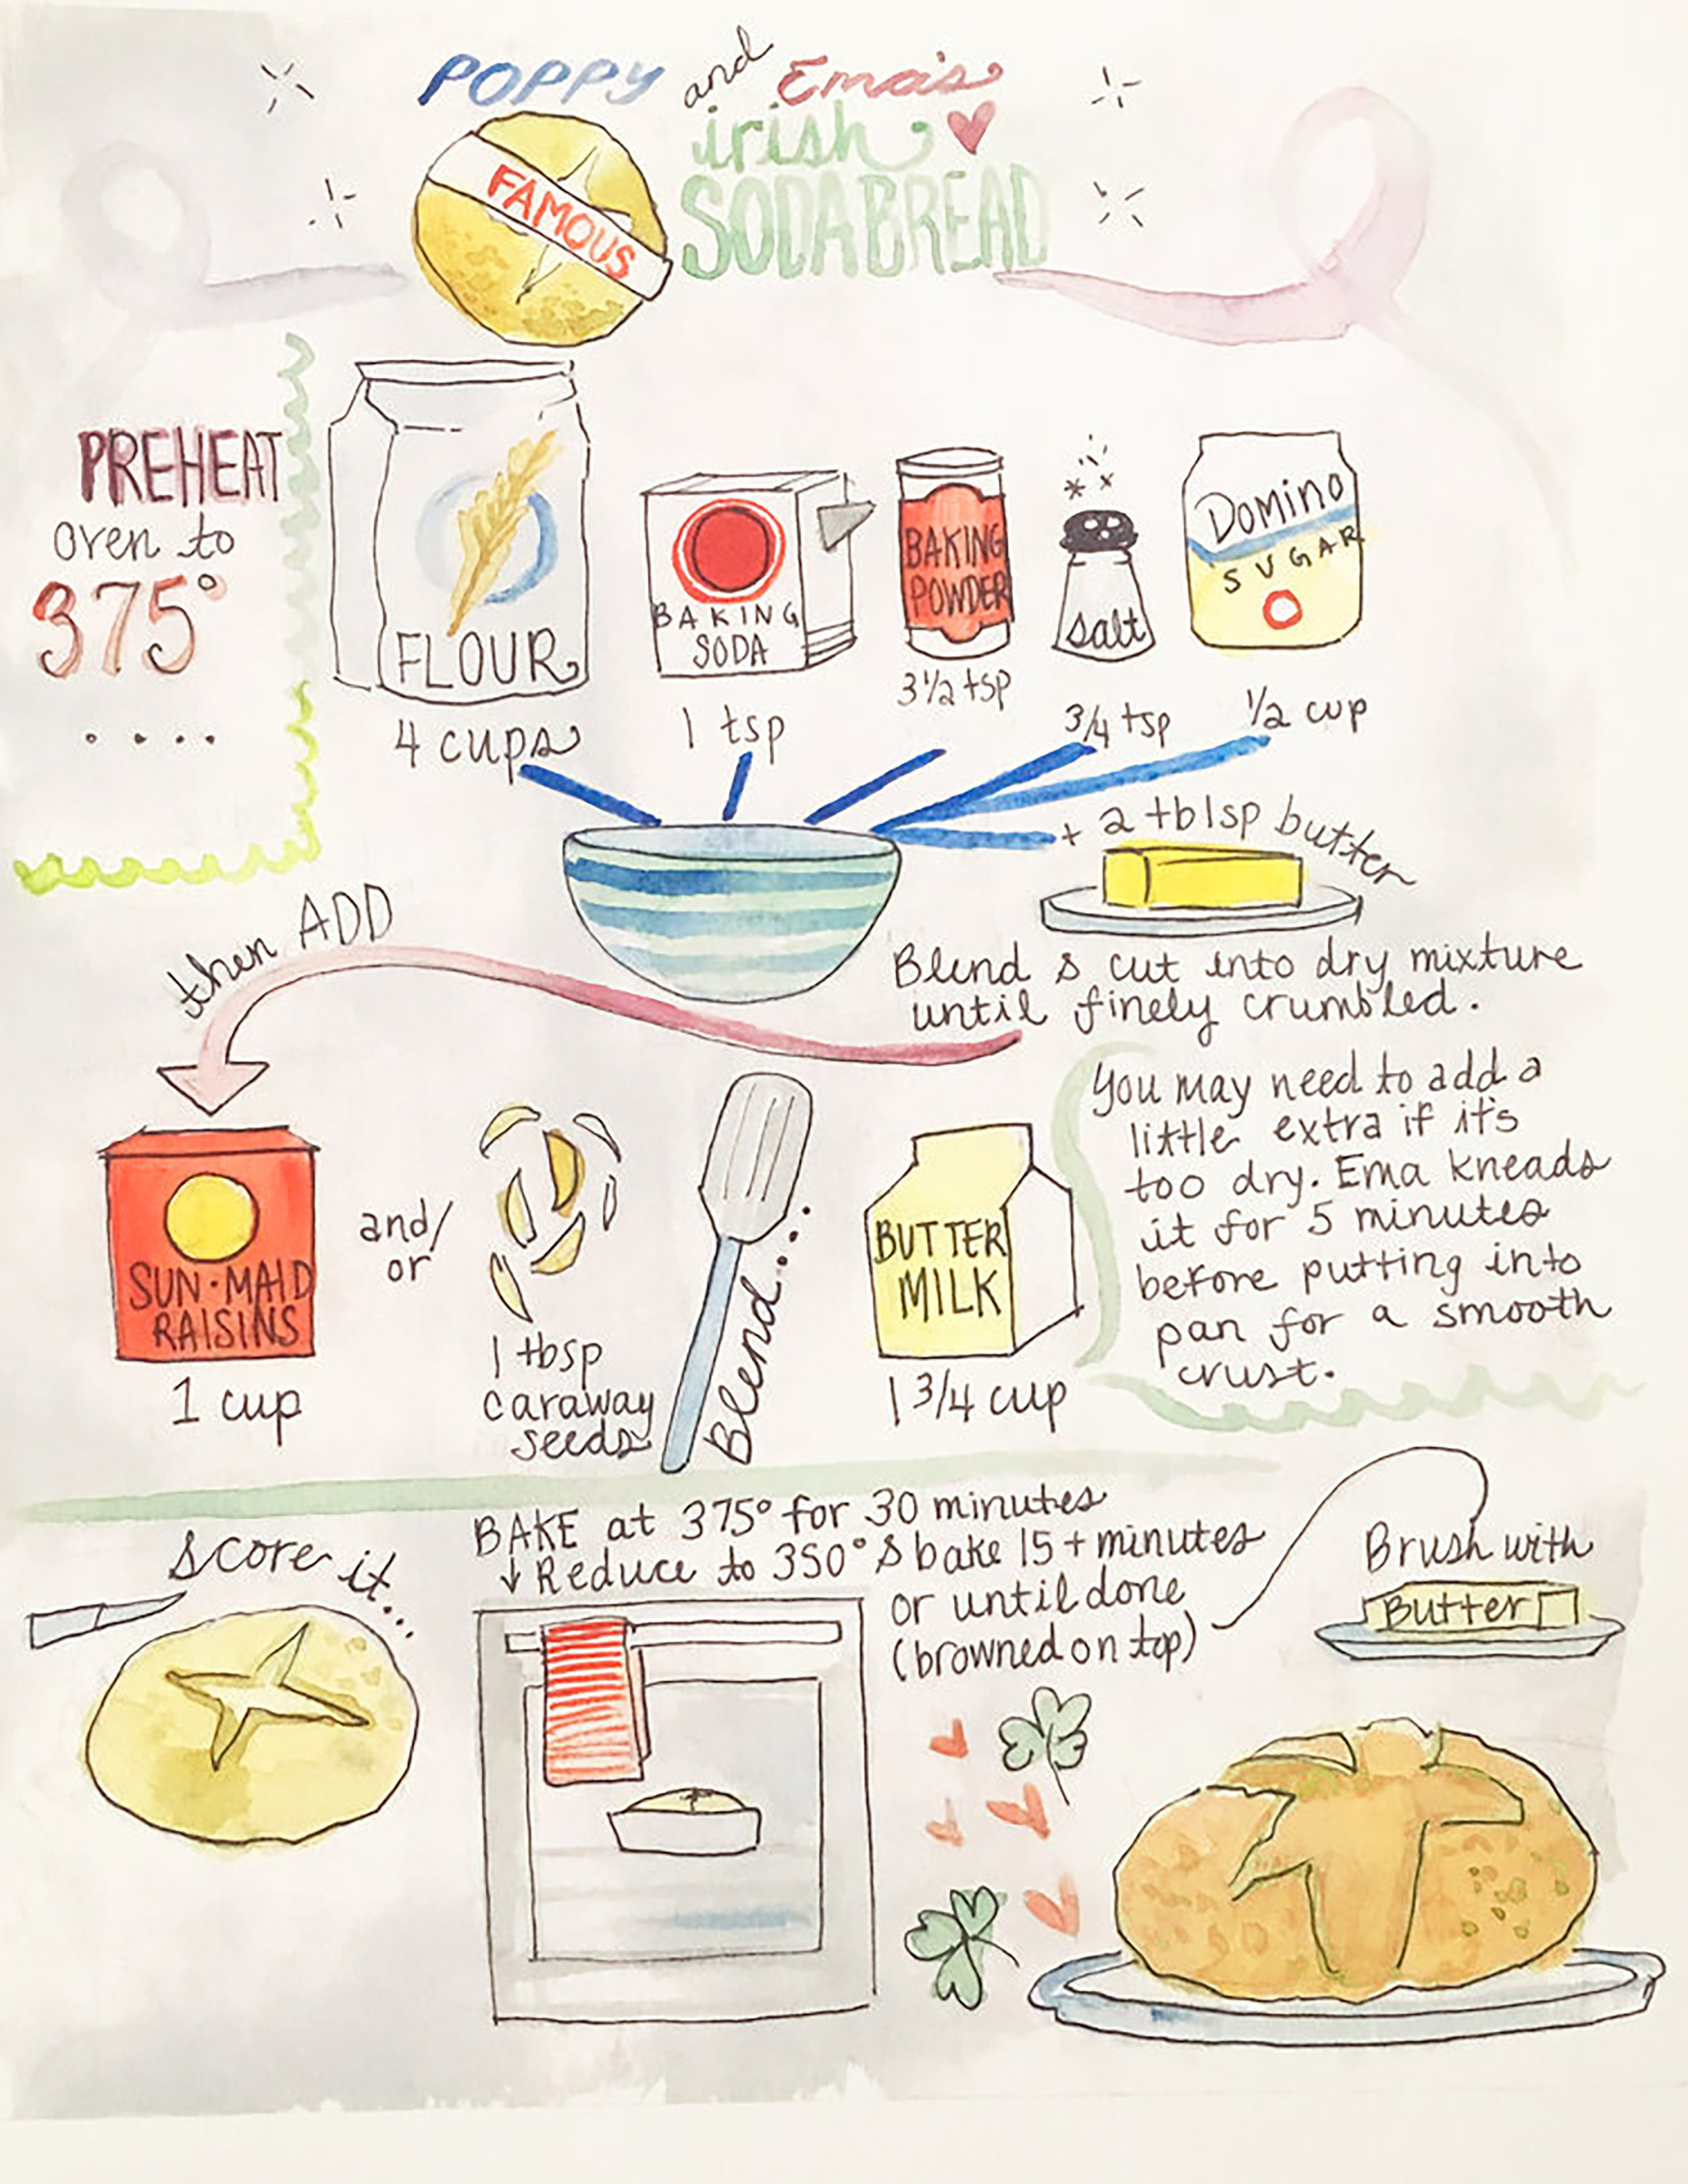 POPPY and Ema's
irish
SODA BREAD
FAMOUS
PREHEAT
oven to
375°
....
FLOUR
4 cups
BAKING
SODA
1 tsp
BAKING
POWDER
3 1/2 tsp
salt
3/4 tsp
Domino
SUGAR
1/2 cup
+ 2 tblsp butter
Blend & cut into dry mixture
until finely crumbled.
then ADD
SUN·MAID
RAISINS
1 cup
and/
or
1 tbsp
caraway
seeds
Blend...
BUTTER
MILK
1 3/4 cup
You may need to add a
little extra if it's
too dry. Ema kneads
it for 5 minutes
before putting into
pan for a smooth
crust.
score it...
BAKE at 375° for 30 minutes
↓ Reduce to 350° & bake 15+ minutes
or until done
(browned on top)
Brush with
Butter